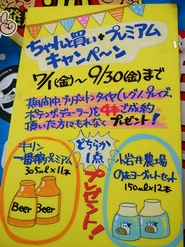 ちゃれ買い+プレミアム
キャンペーン
7/1(金)〜9/30(金)まで
期間中ブリヂストンタイヤ(レグノ、プレイズ、
ポテンザ、デューラー)を4本ご成約
頂いた方にもれなくプレゼント!
キリン
一番搾りプレミアム
305ml×11本
どちらか
1点
プレゼント!!
小岩井農場
のむヨーグルトセット
150ml×12本
Beer
Beer